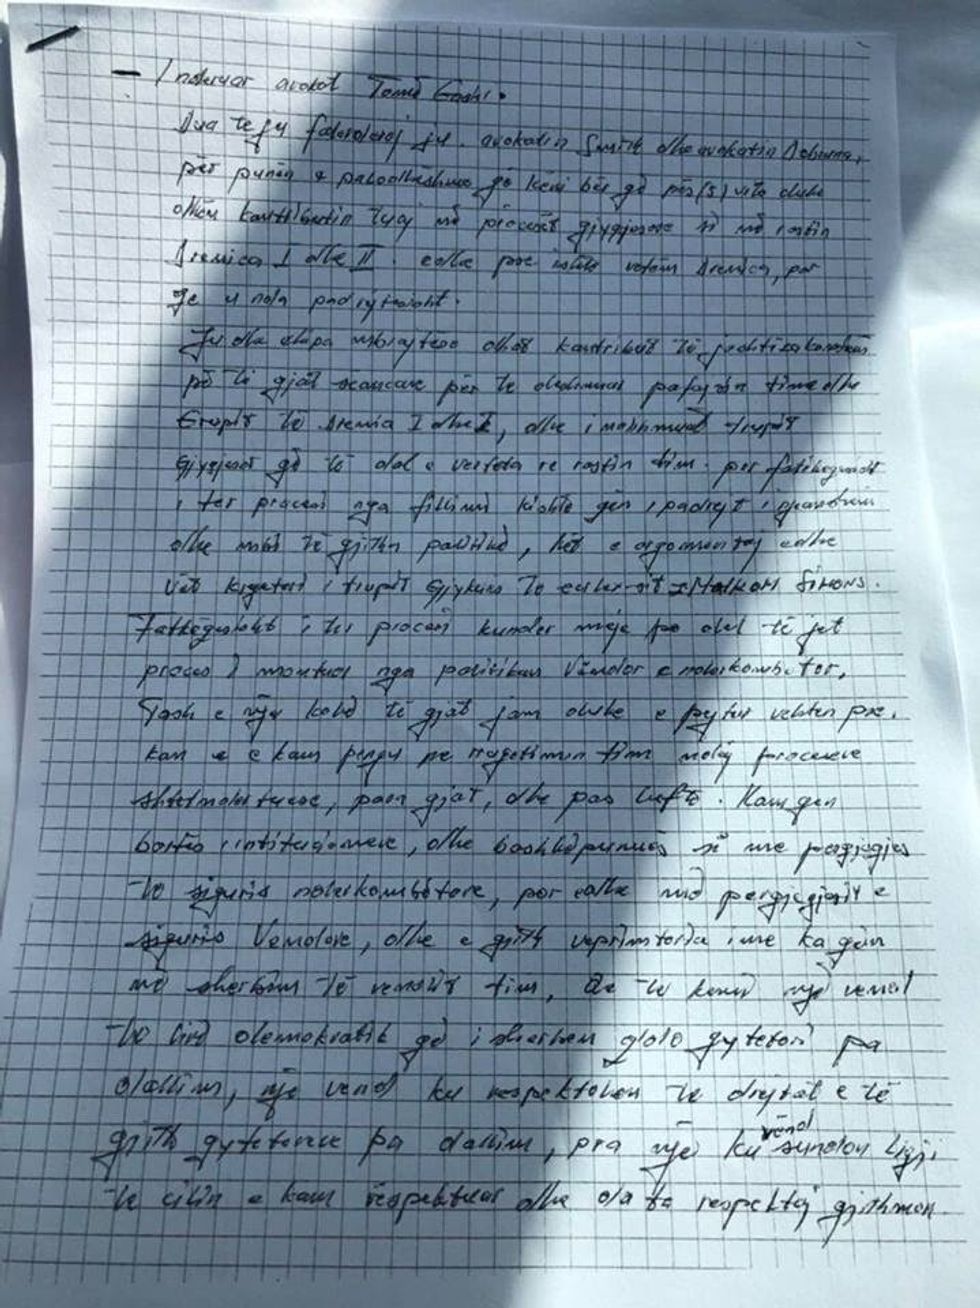 - I nderuar avokat Tomë Gashi.
Dua te ju falenderoj ju. avokatin Smith dhe avokatin
për punën e palodhshme që keni bër që pës (5) vite duke
dhën kontributin tuaj në procesët gjygjesore si në rastin
Drenica I dhe II. edhe pse ishte vetëm Drenica, por
je u nda padrejtësisht.
Ju dhe ekipa mbrojtëse dhat kontribut të jashtëzakonshëm
në të gjat seancave për te dëshmuar pafajsin time dhe
Grupit të Drenica I dhe II, dhe i trupit
gjygjesor që të dal e verteta ne rastin tim. për fatkeqësisht
i ter procesi nga fillimi kishte gen i padrejt i
dhe mbi të gjitha politik, kët e argumentoj edhe
vet kryetari i trupit Gjykues te eulex-it z. Malkom Simons.
Fatkeqësisht i ter procesi kunder meje po del të jet
proces I montuar nga politikan Vendor e ndërkombëtar,
Tash e një kohë të gjat jam duke e pytur vehten pse.
kan e e kam pengu me rrugëtimin tim ndaj proceseve
shtetndërtuese, paqe gjat, dhe pas luftë. Kam gen
bartës i institucioneve, dhe bashkëpunues si me pergjegjës
te siguris ndërkombëtare, por edhe me pergjegjësit e
siguris Vendore, dhe e gjith veprimtaria ime ka gen
në sherbim të vendit tim, Qe te kemi një vend
te lirë demokratik që i sherben qdo qytetari pa
dallim, një vend ku respektohen te drejtat e të
gjith qytetarve pa dallim, pra një vend ku sundon ligji
te cilin e kam respektuar dhe do ta respektoj gjithmon.